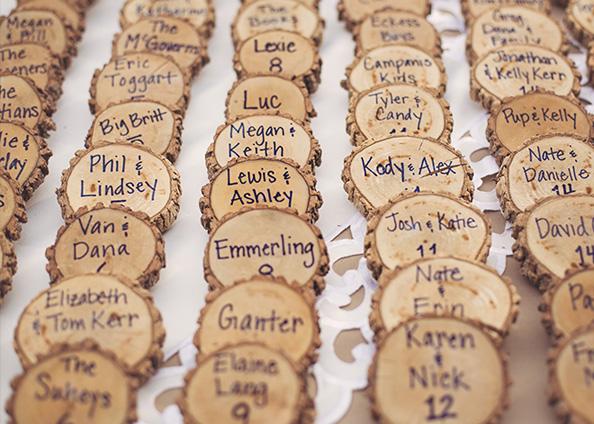 Megan
& Phil
The
The
Katherine
The
McGoverns
Eric
Toggart
Big Britt
Phil &
Lindsey
Van &
Dana
Elizabeth
& Tom Kerr
The
Suheys
The
Lexie
8
Luc
Megan &
Keith
Lewis &
Ashley
Emmerling
9
Ganter
Elaine
Lang
9
Eckess
Boys
Campanis
Kids
Tyler &
Candy
11
Kody & Alex
Josh & Katie
11
Nate &
Erin
Karen
& Nick
12
Greg,
Dana &
Family
Jonathan
& Kelly Kerr
Pup & Kelly
Nate &
Danielle
14
David
14